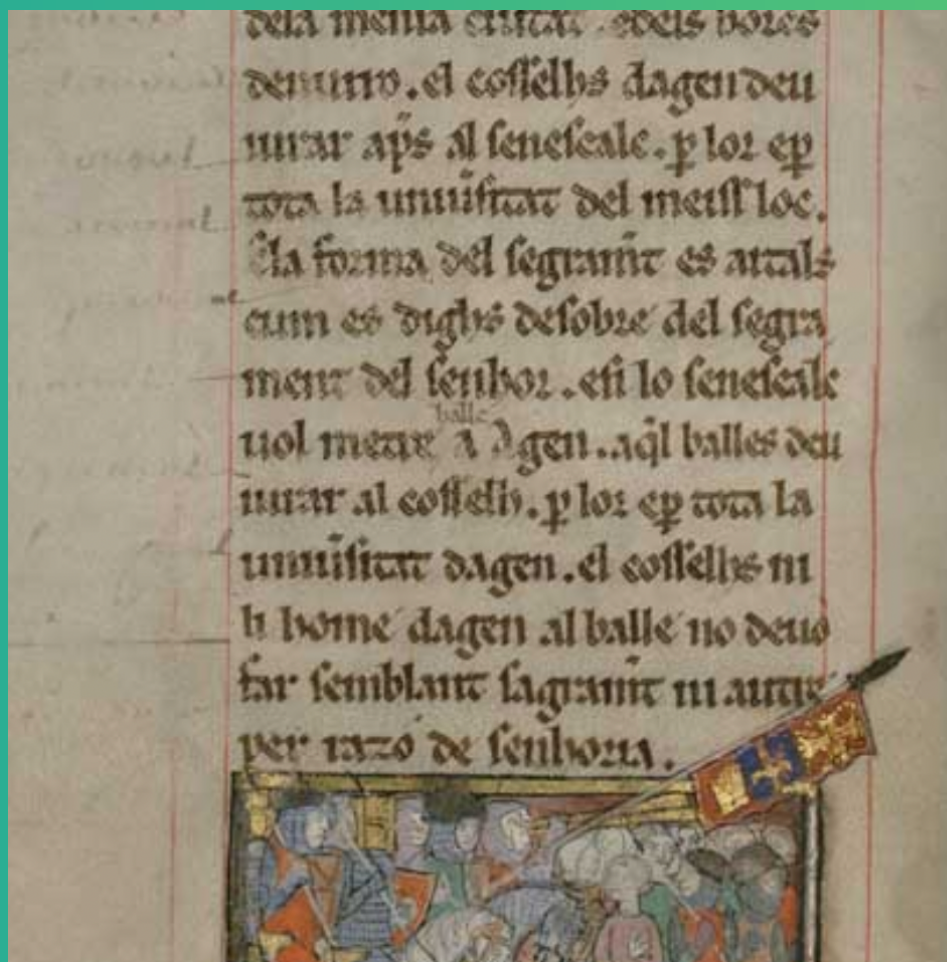 dela meiſſa ciutat. edels borcs
denuiro. el coſſelhs dagen deu
iurar ap̄s al ſeneſcalc. ꝑ lor eꝑ
tota la uniuſ̄itat del meiſſ loc.
Ela forma del ſegram̄t es aitals
cum es dighs deſobre del ſegra
ment del ſenhor. eſi lo ſeneſcalc
balle
uol metre a Agen. aq̄l balles deu
iurar al coſſelh. ꝑ lor eꝑ tota la
uniuſ̄itat dagen. el coſſelhs ni
li home dagen al balle no deuō
far ſemblant ſagram̄t ni autre
per razo de ſenhoria.